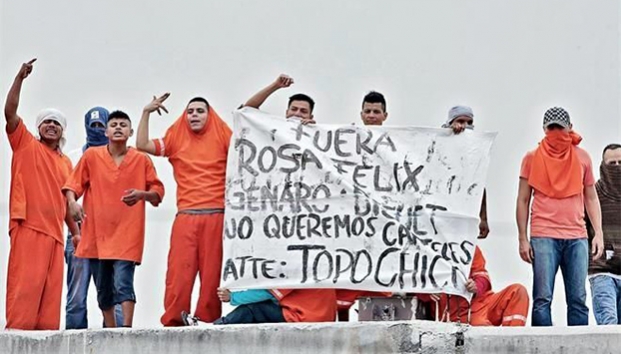 FUERA
ROSA FELIX
GENARO
NO QUEREMOS CARTELES
ATTE: TOPO CHICO